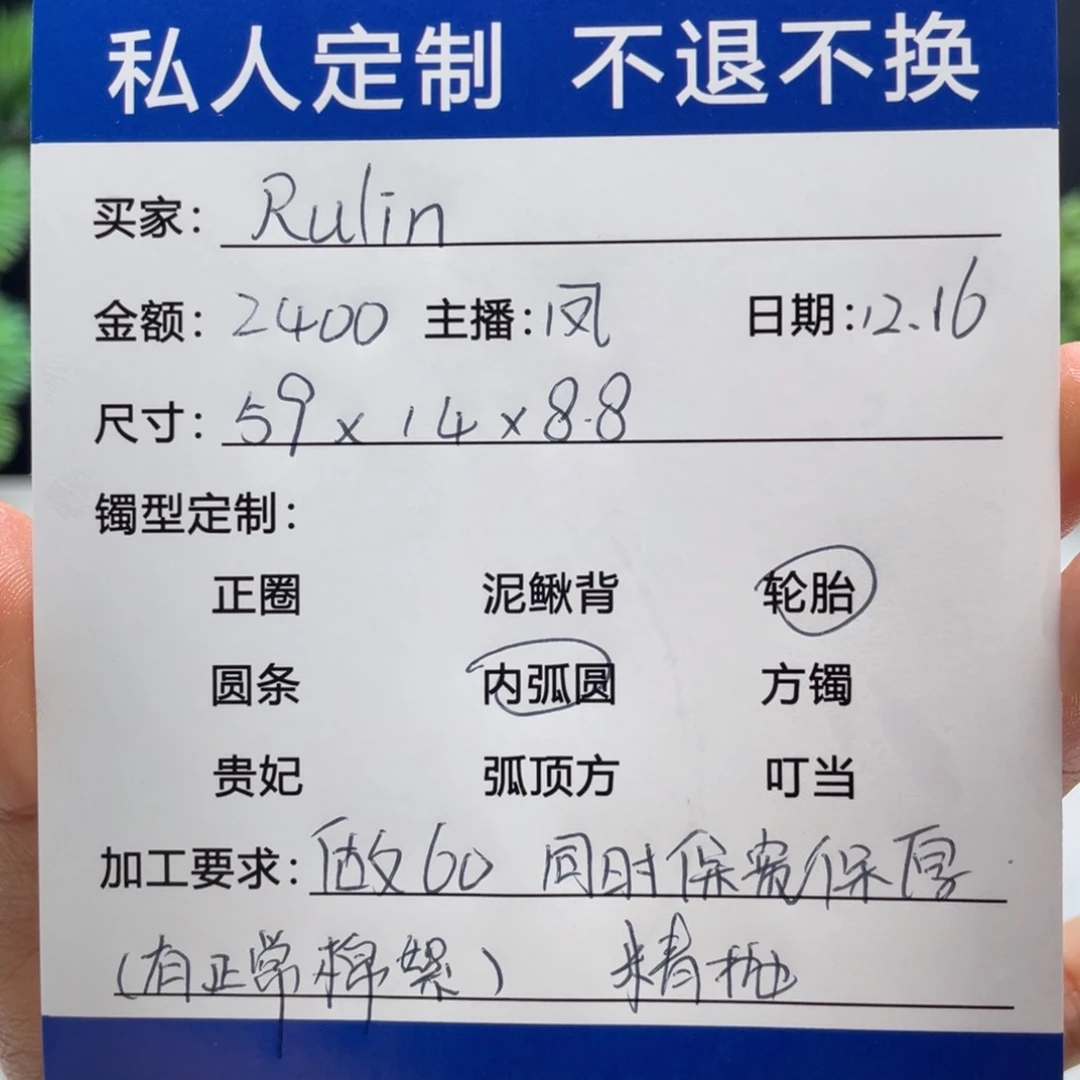 私人定制 不退不换
买家：Rulin
金额：2400 主播：凤 日期：12.16
尺寸：59 x 14 x 8.8
镯型定制：
正圈 泥鳅背 轮胎
圆条 内弧圆 方镯
贵妃 弧顶方 叮当
加工要求：做60 同时保宽保厚
（有正常棉絮） 精抛